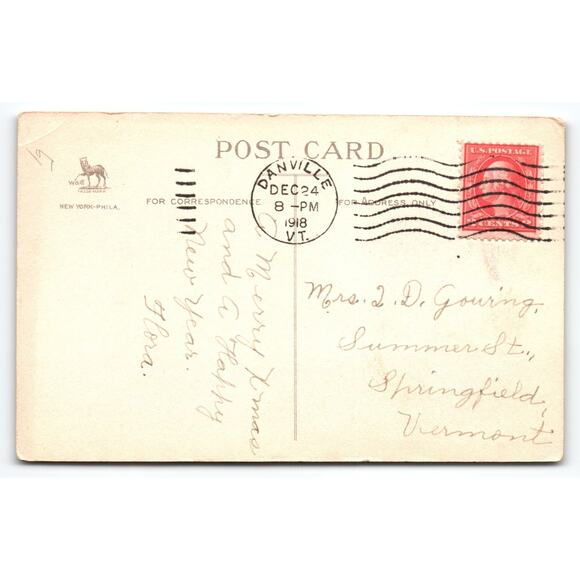 19
POST CARD
W&B
TRADE MARK
NEW YORK-PHILA.
FOR CORRESPONDENCE
FOR ADDRESS ONLY
DANVILLE
DEC 24
8 -PM
1918
VT.
U.S. POSTAGE
CENTS
A Merry Xmas
and a Happy
New Year.
Flora.
Mrs. I. D. Gouring,
Summer St.,
Springfield,
Vermont